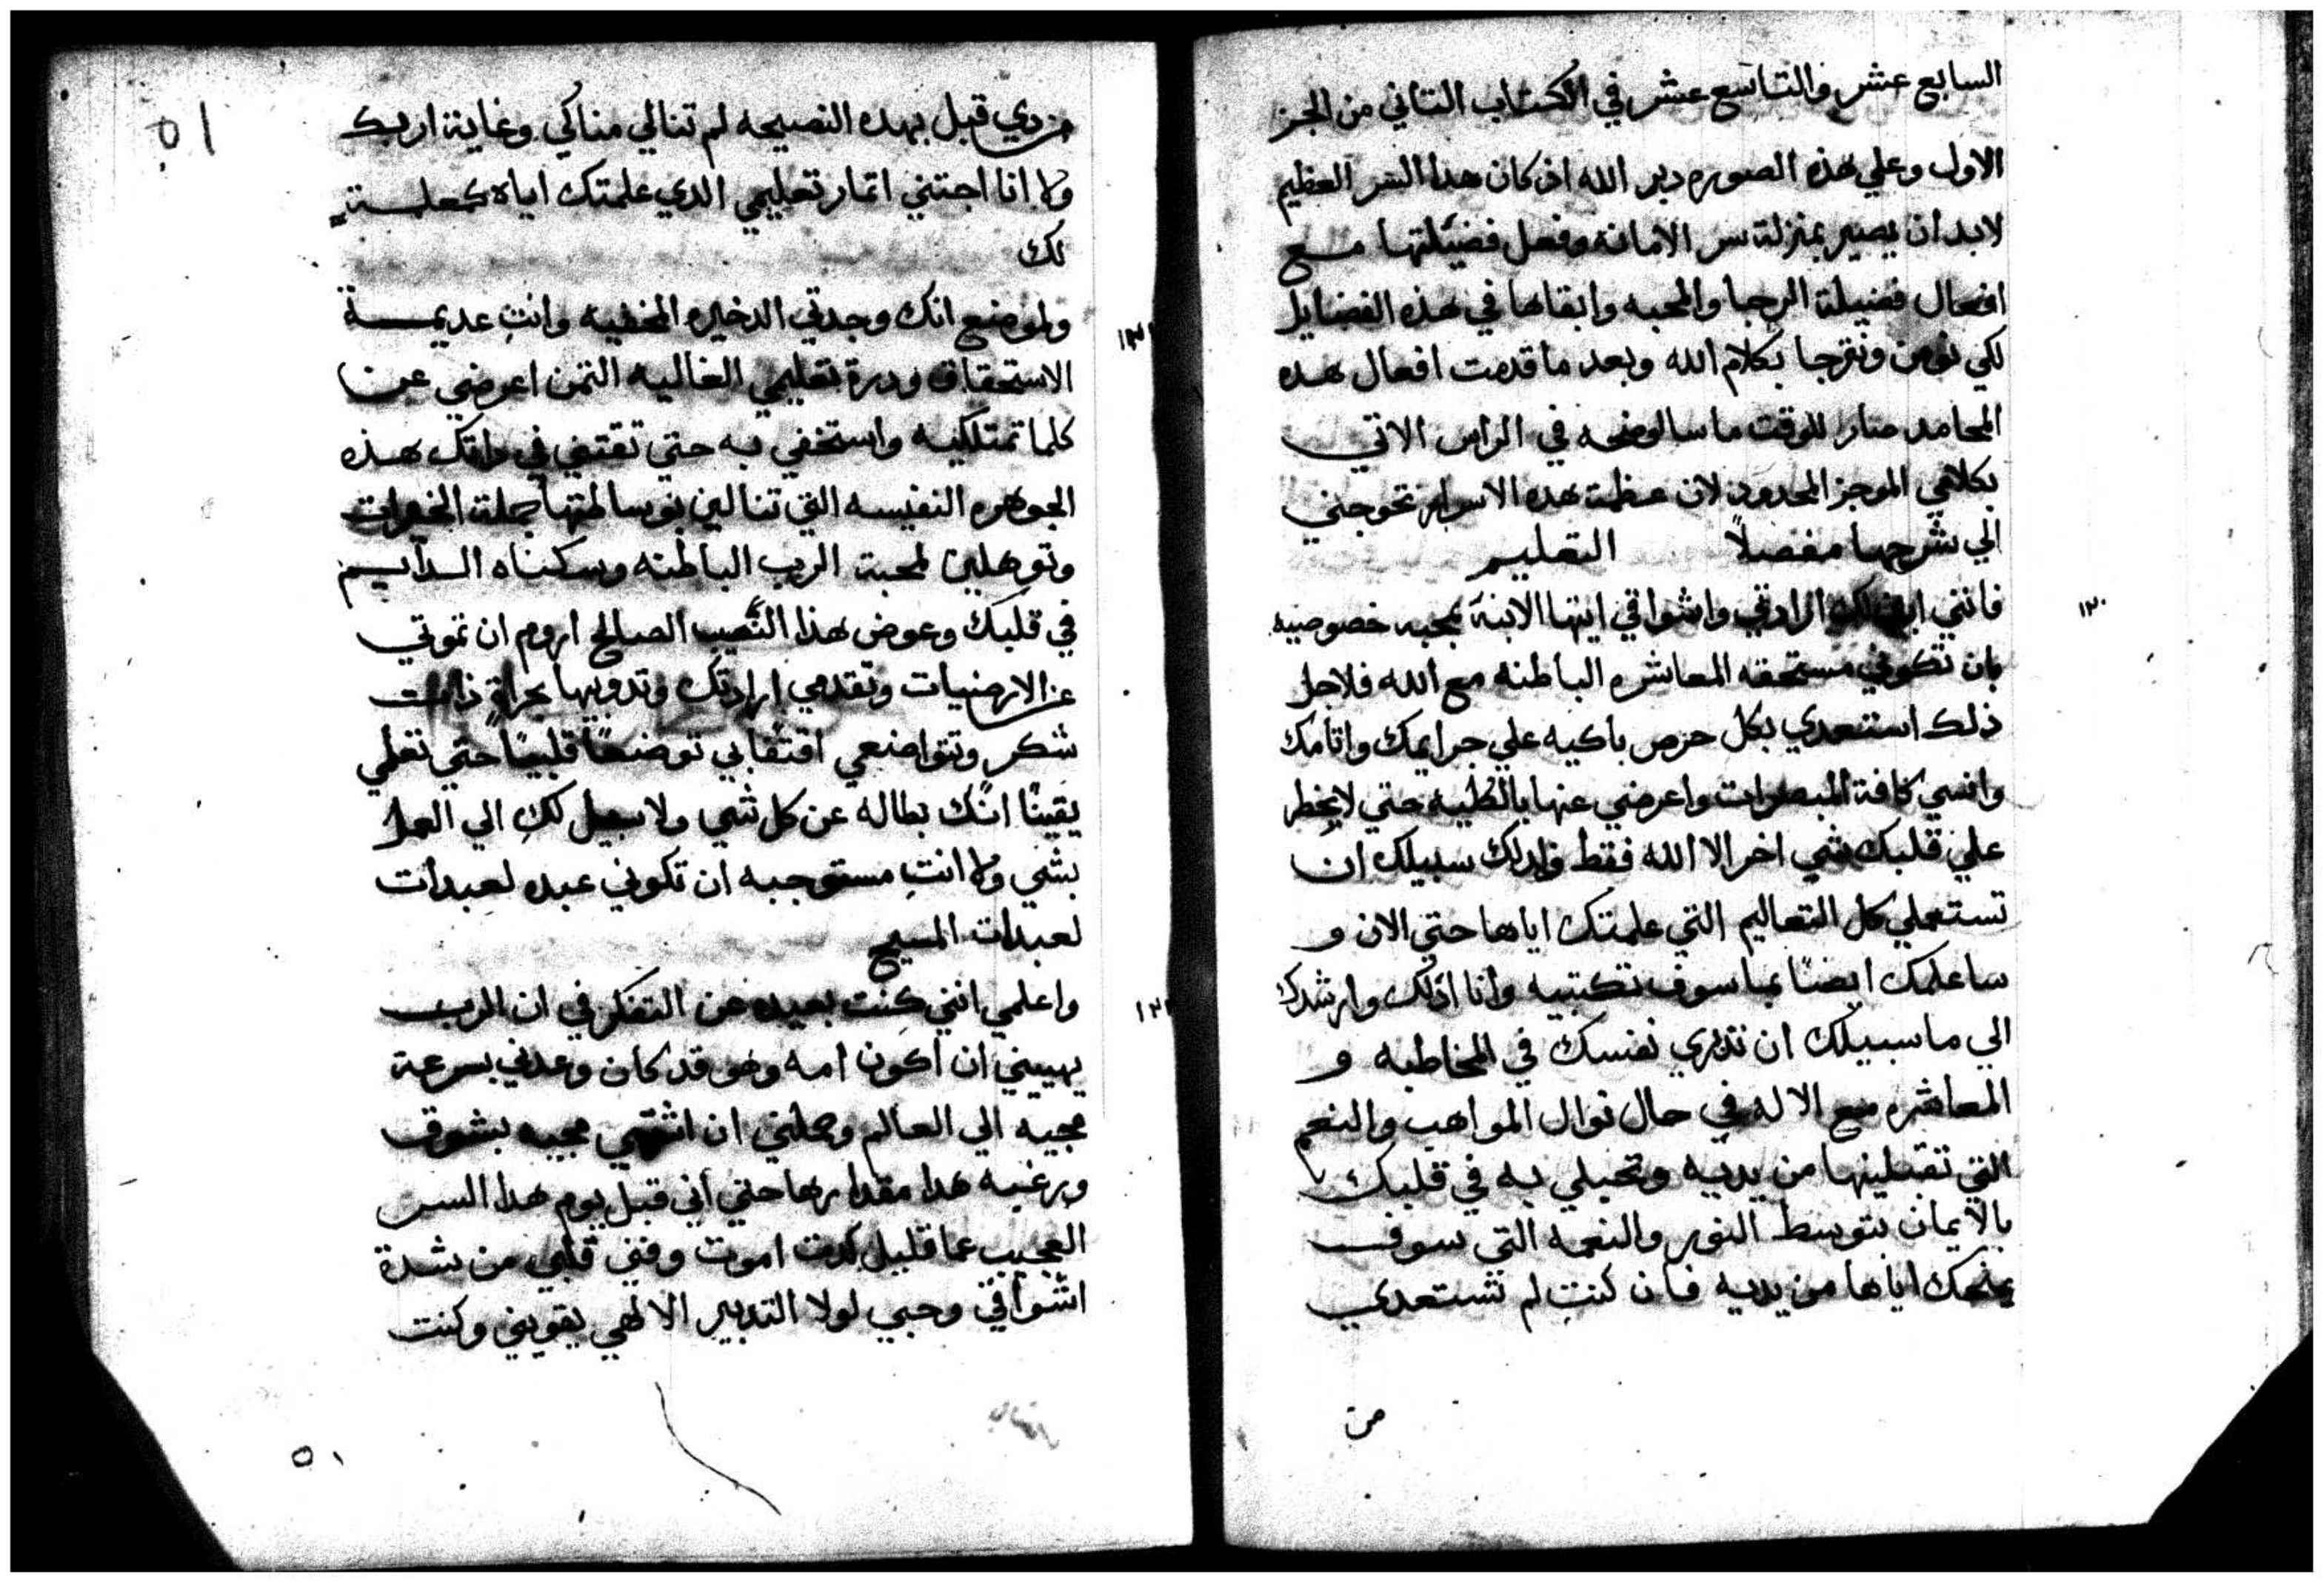 السابع عشر والتاسع عشر في الكتاب التاني من الجز
الاول وعلي هذه الصوره دبر الله اذ كان هدا السر العظيم
لابد ان يصير بمنزلة سر الامانه وفعل فضيلتها مع
افعال فضيلة الرجا والمحبه وابقاها في هذه الفضايل
لكي نومن ونترجا بكلام الله وبعد ما قدمت افعال هده
المحامد صار للوقت ما ساوضحه في الراس الاتي
بكلامي الموجز المحدود لان عظمة هده الاسرار تحوجني
الي شرحها مفصلاً التعليم
١٢٠
فانني لك ارادتي واشواقي ايتها الابنة بمحبه خصوصيه
بان تكوني مستحقه المعاشره الباطنه مع الله فلاجل
ذلك استعدي بكل حرص باكيه علي جرايمك واتامك
وانسي كافة المبصرات واعرضي عنها بالكليه حتي لا يخطر
علي قلبك شي اخر الا الله فقط ولدلك سبيلك ان
تستعملي كل التعاليم التي علمتك اياها حتي الان و
ساعلمك ايضًا بما سوف تكتبيه وانا ادلك وارشدك
الي ما سبيلك ان تدبري نفسك في المخاطبه و
المعاشره مع الاله في حال نوال المواهب والنعم
التي تقبلينها من يديه وتحبلي به في قلبك
بالايمان بتوسط النور والنعمه التي سوف
يمنحك اياها من يديه فان كنتِ لم تستعدي
من
٥١
من دي قبل بهده النصيحه لم تنالي مناكي وغاية اربك
ولا انا اجتني اتمار تعليمي الدي علمتك اياه كمعلمة
لك
١٢١
ولموضع انك وجدتي الدخيره المخفيه وانتِ عديمة
الاستحقاق ودرة تعليمي الغاليه التمن اعرضي عن
كلما تمتلكيه واستخفي به حتي تقتني في داتك هذه
الجوهره النفيسه التي تنالين بوسالتها جملة الخيرات
وتوهلين لمحبة الرب الباطنه وسكناه الدايم
في قلبك وعوض هذا النَّصيب الصالح اروم ان تموتي
عن الارضيات وتقدمي ارادتك وتدوبيها بحرارة ذات
شكر وتتواضعي اقتفابي توضعًا قلبيًا حتي تعلمي
يقينًا انكِ بطاله عن كل شي ولا سبيل لكِ الي العمل
بشي ولا انتِ مستوجبه ان تكوني عبده لعبدات
لعبدات المسيح
١٢٢
واعلمي انني كنت بعيده عن التفكر في ان الرب
يهييني ان اكون امه وهو قد كان وعدني بسرعة
مجيه الي العالم وجعلني ان اشتهي مجيه بشوق
وبرغبه هدا مقدارها حتي اني قبل يوم هدا السر
العجيب عما قليل كدت اموت وفني قلبي من شدة
اشواقي وحبي لولا التدبير الالهي يقويني وكنت
٥١